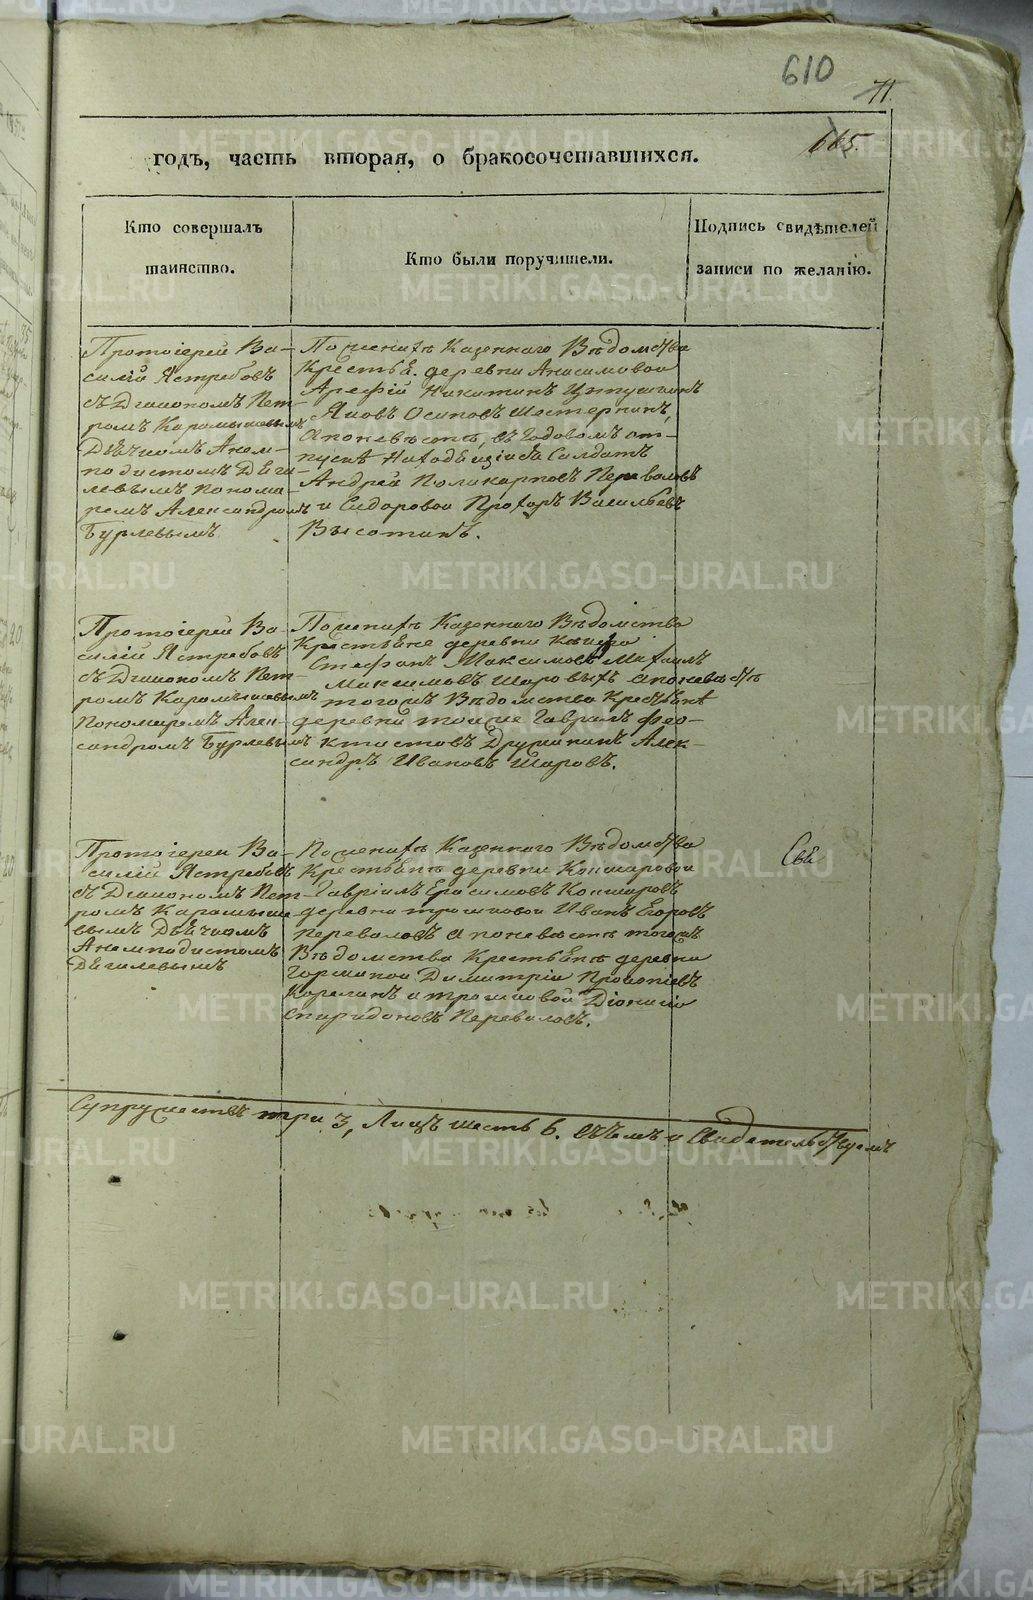 610
71.
665.
годъ, часть вторая, о бракосочетавшихся.
Кто совершалъ
таинство.
Кто были поручители.
Подпись свидѣтелей
записи по желанію.
Протоіерей Ва-
силій Ястребовъ
съ Діакономъ Пет-
ромъ Карамышевымъ
Дьячкомъ Анем-
подистомъ Дяги-
левымъ Понома-
ремъ Александромъ
Бурлевымъ
По женихѣ Казеннаго Вѣдомства
Крестьян. деревни Анисимовой
Арефій Никитинъ
Яковъ Осиповъ Шостеркинъ,
а по невѣстѣ, въ Годовомъ от-
пускѣ Находящійся Солдатъ
Андрей Поликарповъ Переваловъ
и Сидоровой Прохоръ Васильевъ
Высотинъ.
Протоіерей Ва-
силій Ястребовъ
съ Діакономъ Пет-
ромъ Карамышевымъ
Пономаремъ Алек-
сандромъ Бурлевымъ
По женихѣ Казеннаго Вѣдомства
Крестьяне деревни
Стефанъ Максимовъ Михаилъ
Максимовъ Шаровыхъ а по невѣстѣ
тогожъ Вѣдомства Крестьянѣ
деревни тойже Гаврилъ Фео-
ктистовъ Дружининъ Алек-
сандръ Ивановъ Шаровъ.
Протоіерей Ва-
силій Ястребовъ
съ Діакономъ Пет-
ромъ Карамыше-
вымъ Дьячкомъ
Анемподистомъ
Дягилевымъ
По женихѣ Казеннаго Вѣдомства
Крестьянѣ деревни Кошкаровой
Гавріилъ Ерасимовъ Кошкаровъ
деревни трошковой Иванъ Егоровъ
Переваловъ а по невѣстѣ тогожъ
Вѣдомства Крестьянѣ деревни
Димитрій Прокопіевъ
Корелинъ и трошковой Діонисій
Спиридоновъ Переваловъ.
Свѣ
Супружествъ три 3, Лицъ шесть 6. Въ чемъ и Свидетельствуемъ
METRIKI.GASO-URAL.RU